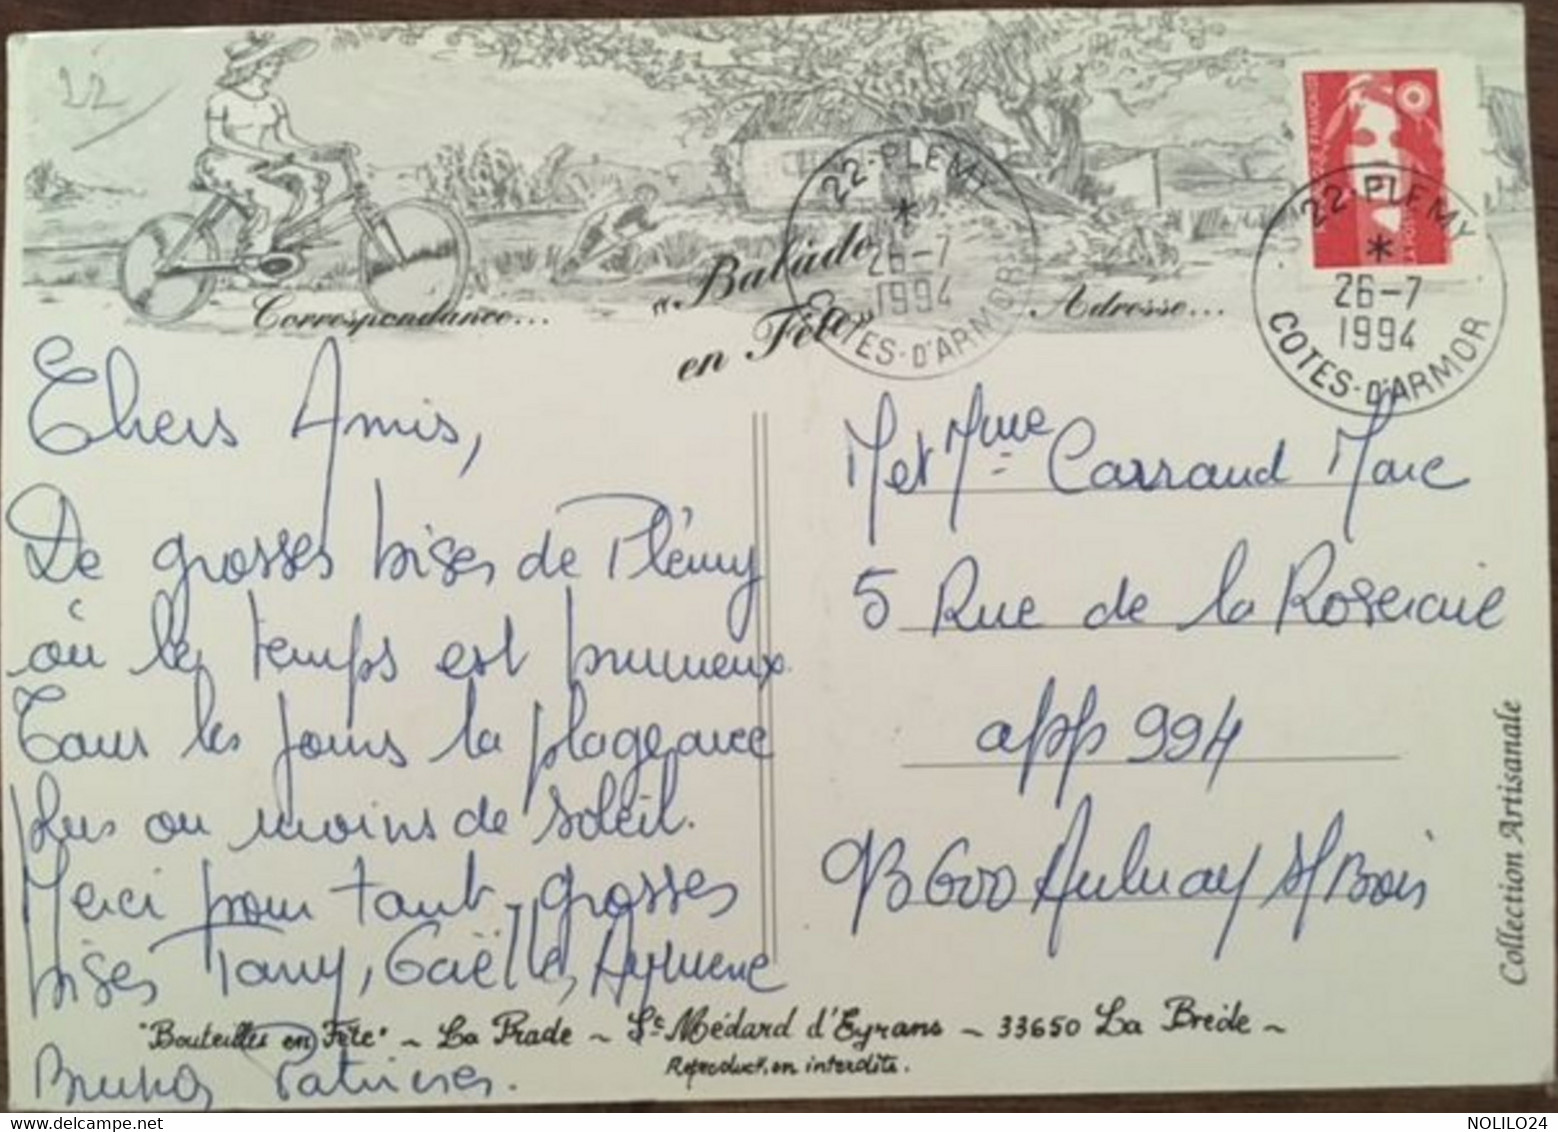 22
22-PLEMY
*
26-7
1994
COTES-D'ARMOR
22-PLEMY
*
26-7
1994
COTES-D'ARMOR
Correspondance...
"Balade
en Fête"
Adresse...
Chers Amis,
De grosses bises de Plémy
où le temps est brumeux.
Tous les jours la plage avec
plus ou moins de soleil.
Merci pour tout - grosses
bises Tany, Gaëlle,
Bruno, Patrices.
M et Mme Carraud Marc
5 Rue de la Roseraie
app 994
93600 Aulnay s/ Bois
Collection Artisanale
"Bouteilles en Fête" ~ La Prade ~ St Médard d'Eyrans ~ 33650 La Brède ~
Reproduction interdite.
NOLILO24